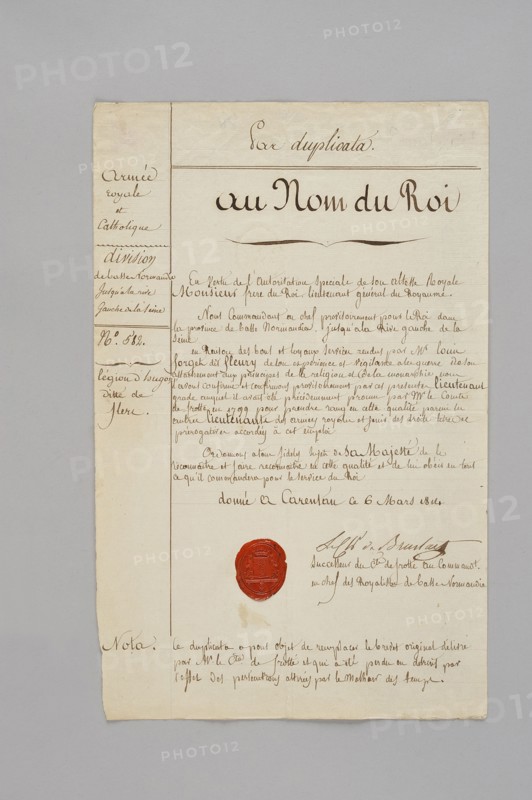 Par duplicata.
Armée
royale
et
Catholique
division
de basse Normandie
Jusqu'à la rive
Gauche de la Seine
N°. 512.
légion d'hugon
dite de
flers.
au Nom du Roi
En vertu de l'autorisation Speciale de son altesse Royale
Monsieur frere du Roi lieutenant général du Royaume.
Nous Commandant en chef provisoirement pour le Roi dans
la province de basse Normandie, Jusqu'à la Rive gauche de la
Seine
en Raison des bons et loyaux Services rendus par Mr. louis
forget dit fleury de son experience et vigilance à la guerre de son
attachement aux principes de la religion et de la monarchie nous
avons confirmé et confirmons provisoirement par ces presentes lieutenant
grade auquel il avait été précédemment promu par Mr. le Comte
de frotté en 1799 pour prendre rang en cette qualité parmi les
autres lieutenants des armées royales et jouir des droits
prerogatives accordés à cet emploi
Ordonnons à tous fideles sujets de Sa Majesté de le
reconnaitre et faire reconnaitre en cette qualité et de lui obeir en tout
ce qu'il commandera pour le service du Roi
donné à Carentan ce 6 Mars 1814
Le Ch. de Bruslart
Successeur du Cte. de frotté au Commandt.
en chef des Royalistes de basse Normandie
Nota.
le duplicata a pour objet de remplacer le brevet original délivré
par Mr. le Cte. de frotté et qui a été perdu ou détruit par
l'effet des persecutions attirées par le Malheur des temps.
PHOTO12